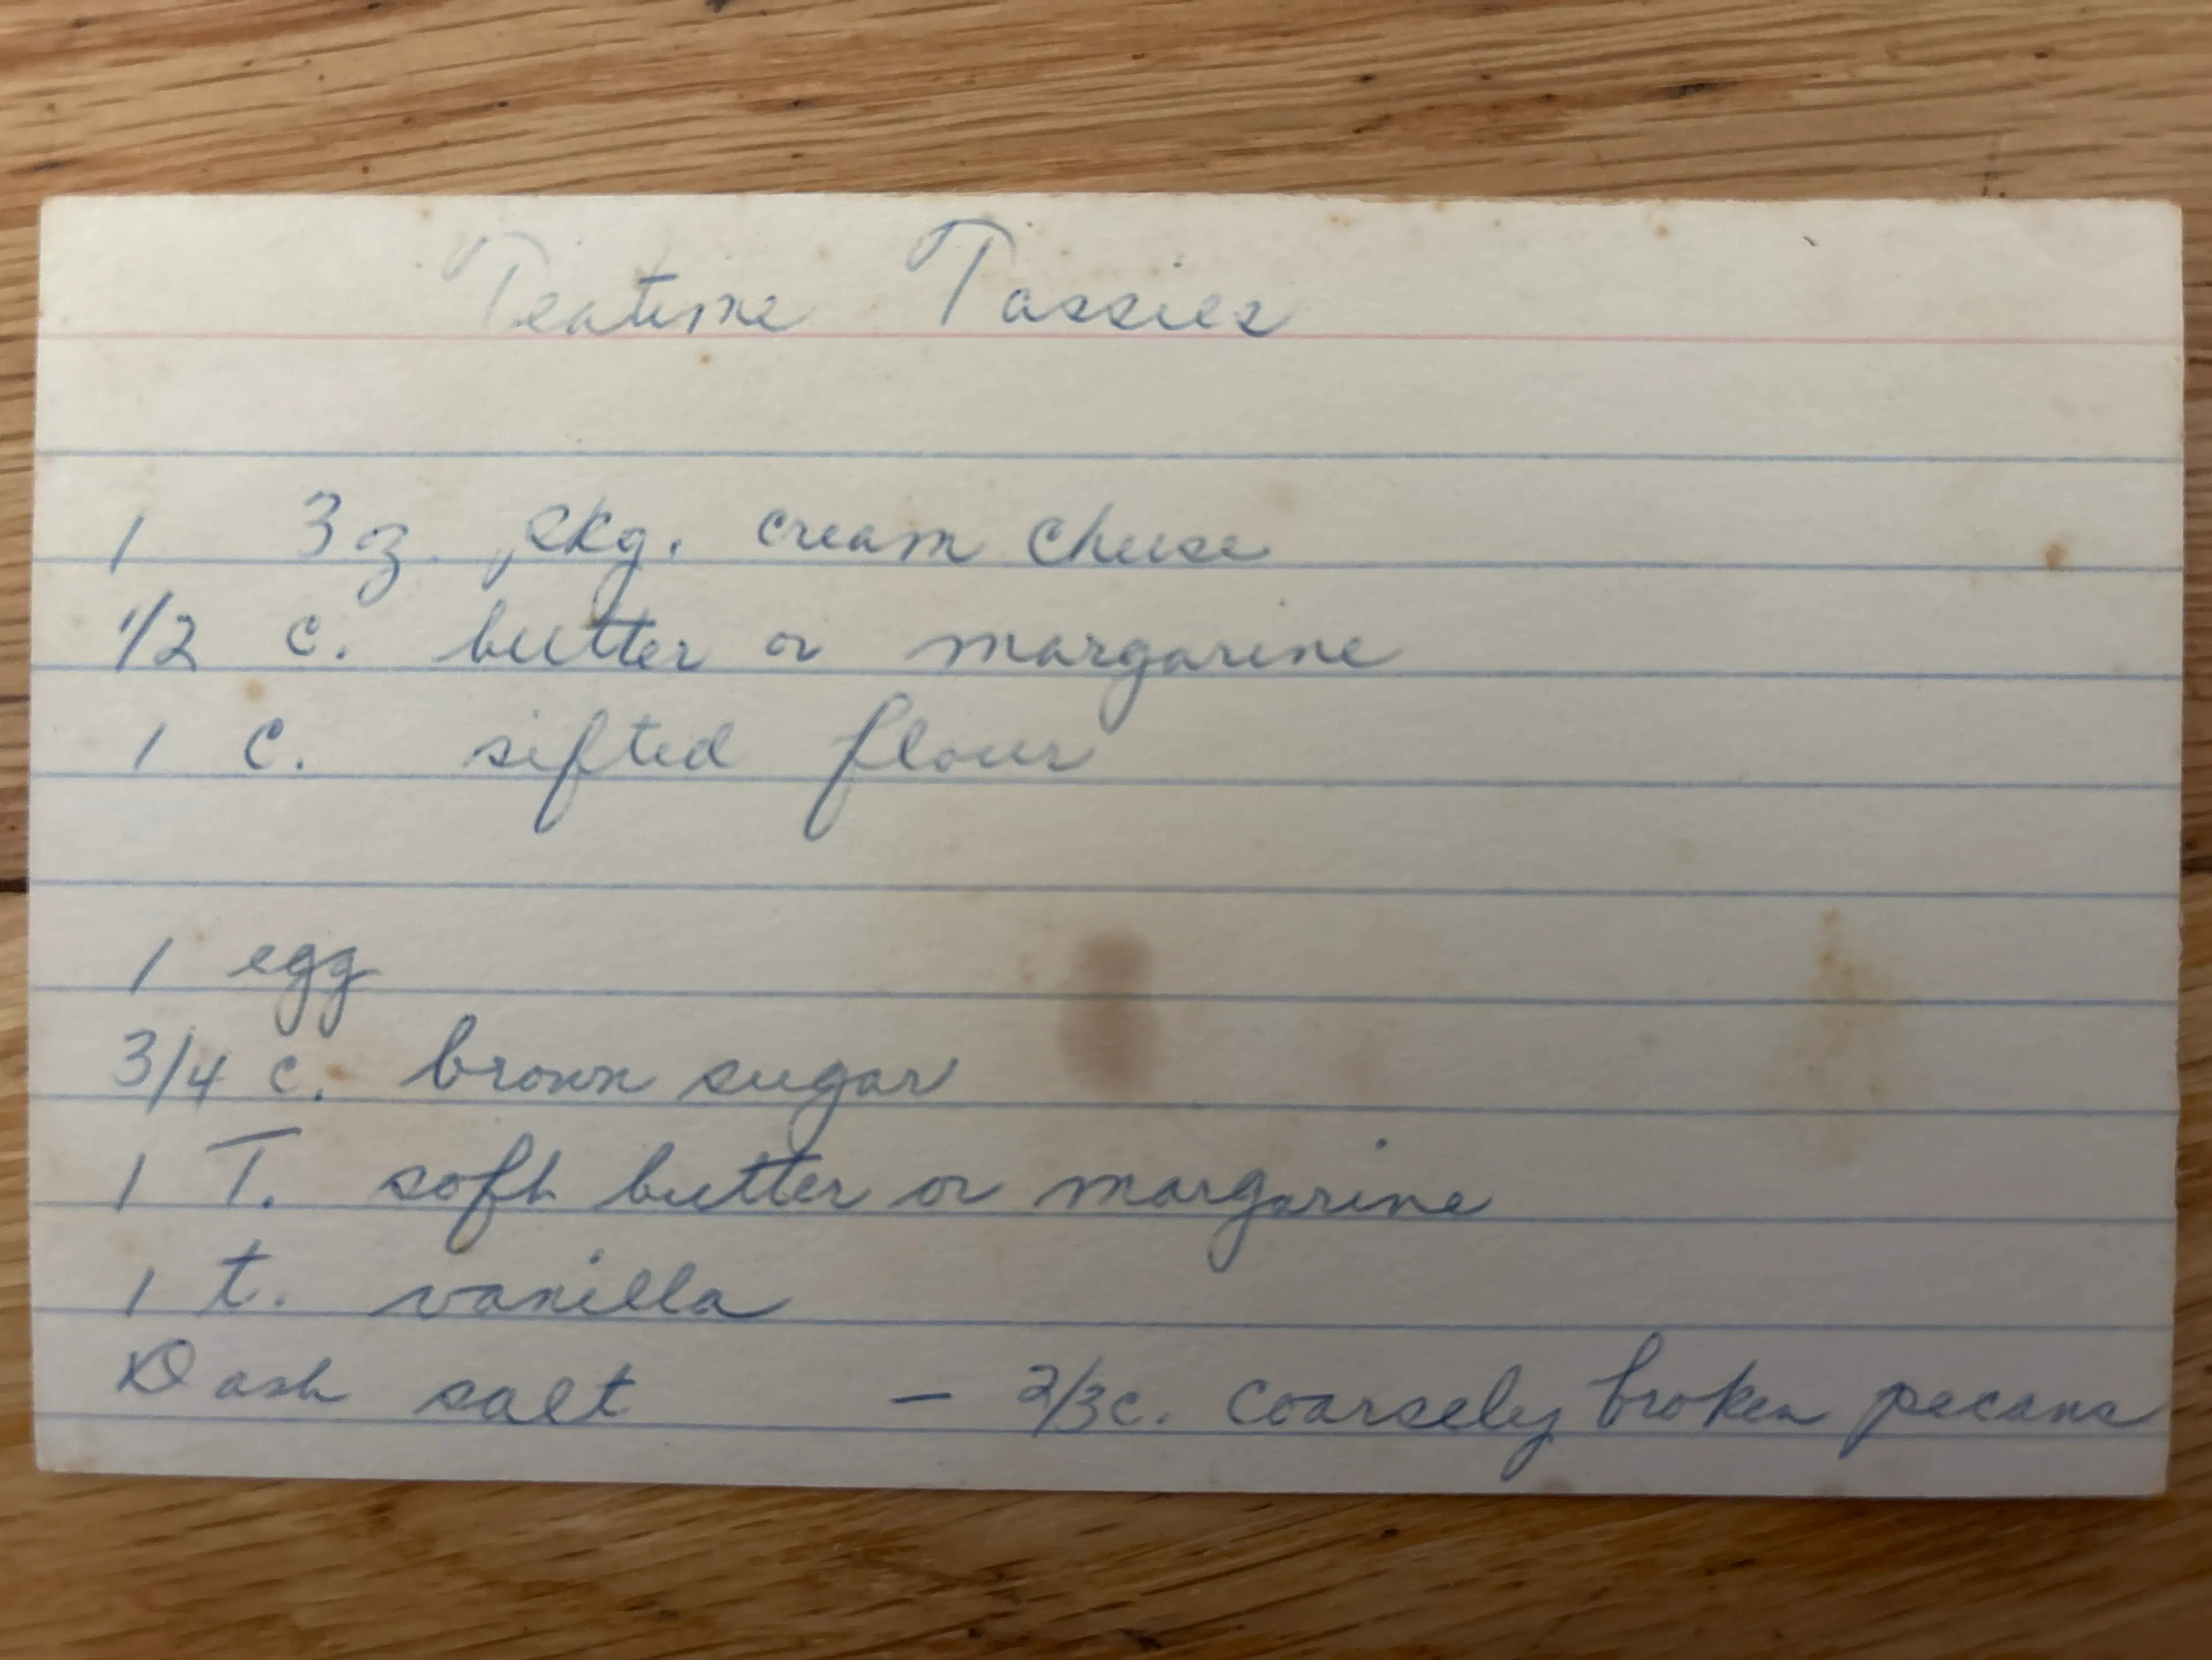 Teatime Tassies
1 3 oz. pkg. cream cheese
1/2 c. butter or margarine
1 C. sifted flour
1 egg
3/4 c. brown sugar
1 T. soft butter or margarine
1 t. vanilla
Dash salt – 2/3 c. coarsely broken pecans